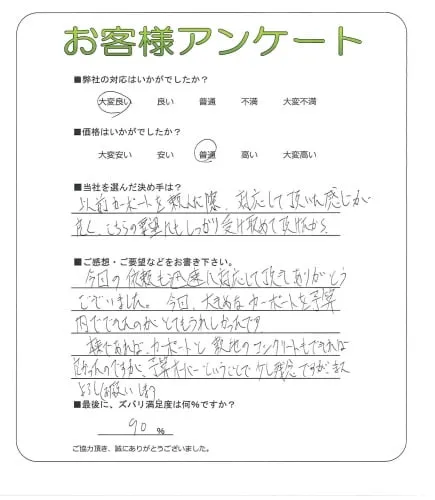 お客様アンケート
■弊社の対応はいかがでしたか?
大変良い 良い 普通 不満 大変不満
■価格はいかがでしたか?
大変安い 安い 普通 高い 大変高い
■当社を選んだ決め手は?
以前カーポートを頼んだ際、対応して頂いた感じが
良く、こちらの要望にもしっかり受け取めて頂けたから、
■ご感想・ご要望などをお書き下さい。
今回の依頼も迅速に対応して頂きありがとう
ございました。今回、大きめなカーポートを予算
内でできたのがとてもうれしかったです
であれば、カーポートと敷地のコンクリートもできれば
良かったのですが、予算オーバーということで 残念ですが、また
よろしくお願いします
■最後に、ズバリ満足度は何%ですか?
90 %
ご協力頂き、誠にありがとうございました。